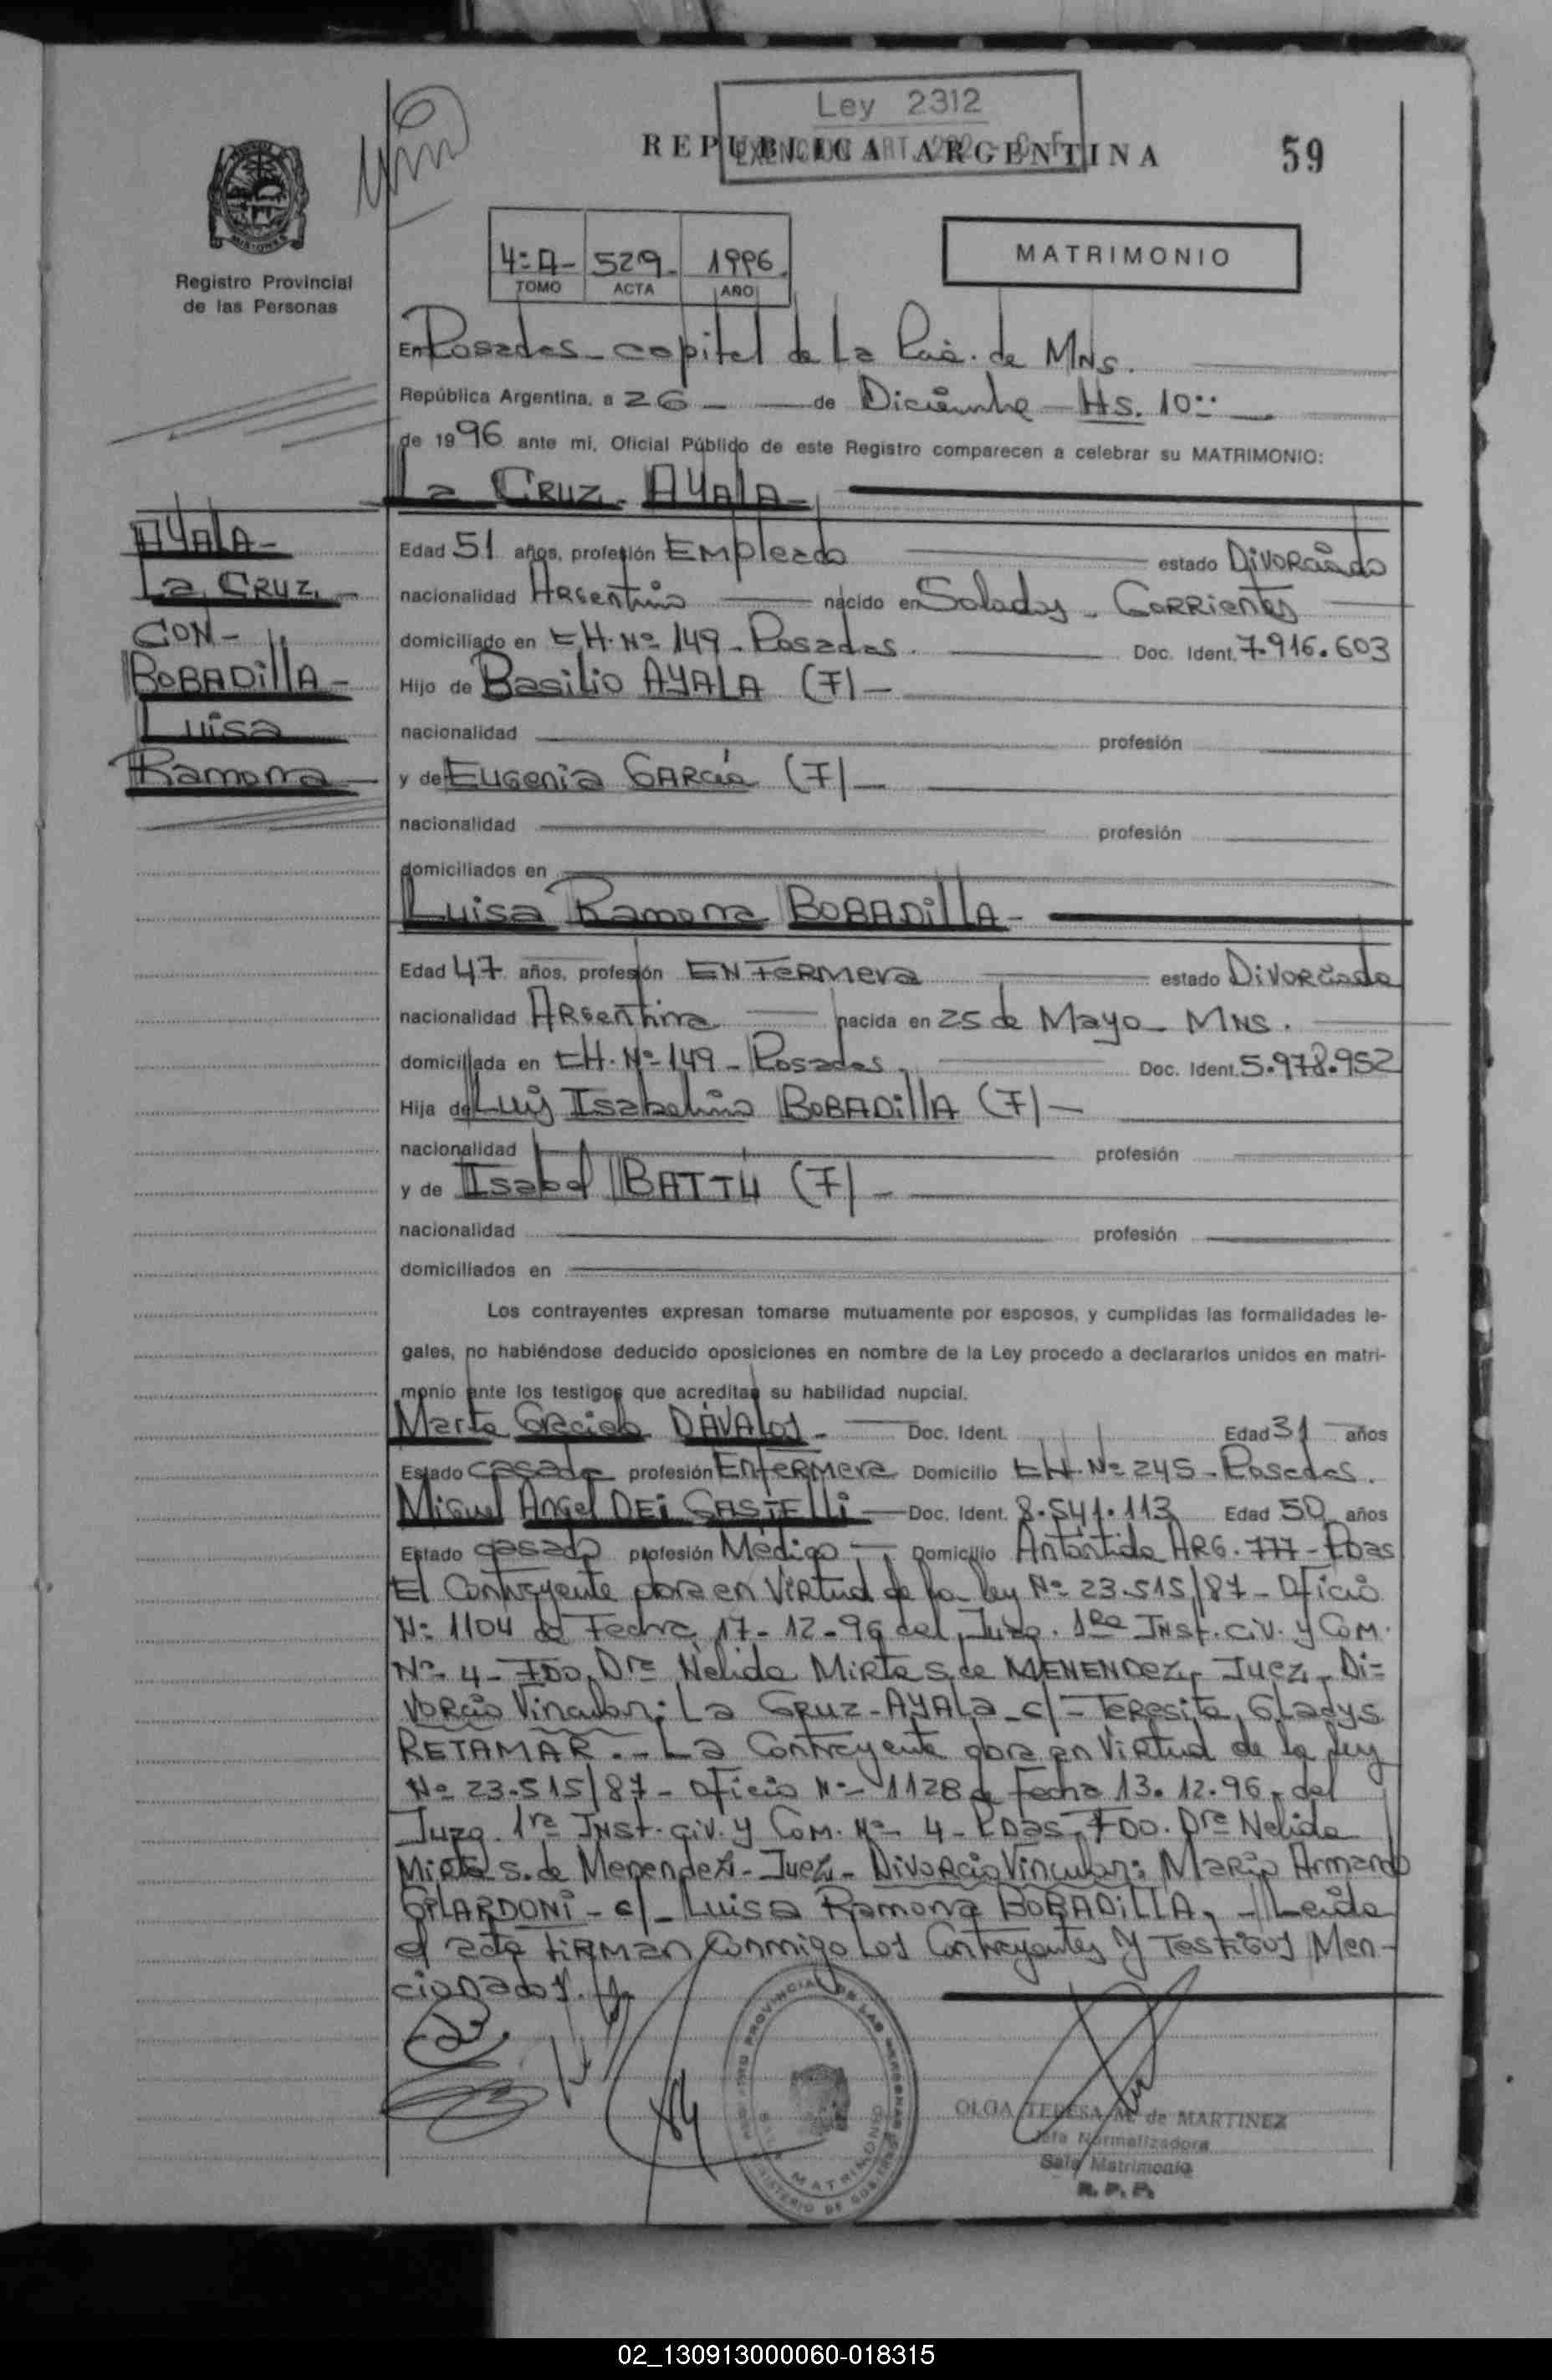 Ley 2312
REPUBLICA ARGENTINA
59
MATRIMONIO
4º A- 529- 1996.
TOMO ACTA AÑO
Registro Provincial
de las Personas
En Posadas - capital de La Pcia. de MNS.
República Argentina, a 26 - de Diciembre - Hs. 10::
de 1996 ante mi, Oficial Público de este Registro comparecen a celebrar su MATRIMONIO:
La CRUZ - AYALA -
AYALA -
La CRUZ, -
CON -
BOBADillA -
Luisa
Ramona -
Edad 51 años, profesión EMpleado estado DiVORCiado
nacionalidad ARGentino nacido en Saladas - CORRientes
domiciliado en CH. Nº 149 - Posadas. Doc. Ident. 7.916.603
Hijo de Basilio AYALA (F) -
nacionalidad profesión
y de EUGenia GARCía (F) -
nacionalidad profesión
domiciliados en
Luisa Ramona BOBADillA -
Edad 47 años, profesión ENFERMera estado DiVORCiada
nacionalidad ARGentina nacida en 25 de Mayo - MNS.
domiciliada en CH. Nº 149 - Posadas, Doc. Ident. 5.978.952
Hija de Luis Isabelino BOBADillA (F) -
nacionalidad profesión
y de Isabel BATTU (F) -
nacionalidad profesión
domiciliados en
Los contrayentes expresan tomarse mutuamente por esposos, y cumplidas las formalidades le-
gales, no habiéndose deducido oposiciones en nombre de la Ley procedo a declararlos unidos en matri-
monio ante los testigos que acreditan su habilidad nupcial.
Marta Graciela DÁVALOS - Doc. Ident. Edad 31 años
Estado casada profesión ENFERMera Domicilio CH. Nº 245 - Posadas.
Miguel Angel DEi CASTElli - Doc. Ident. 8.541.113 Edad 50 años
Estado casado profesión Médico, - Domicilio Antártida ARG. 777 - Pdas
El Contrayente obra en Virtud de la ley Nº 23.515/87 - Oficio
Nº 1104 de Fecha 17-12-96 del Juzg. 1ra INst. civ. y Com.
Nº 4 - FDO. Dra Nélida MiRta S. de MENENDez, - Juez, - Di=
VORCio Vincular: La CRUZ - AYALA - c/ - TeResita Gladys
RETAMAR. - La Contrayente obra en Virtud de la ley
Nº 23.515/87 - Oficio Nº 1128 de fecha 13.12.96, del
Juzg. 1ra INst. civ. y Com. Nº 4 - Pdas, FDO. Dra Nelida
Mirta S. de Menendez - Juez - DiVORCio Vincular: Mario Armando
GiLARDONi - c/ - Luisa Ramona BOBADiLLA, - Leida
el acta FiRMan Conmigo Los Contrayentes y TestiGos Men-
cionados.
REGISTRO PROVINCIAL DE LAS PERSONAS
SALA MATRIMONIO
MINISTERIO DE GOBIERNO
OLGA TERESA M. de MARTINEZ
Jefa Normalizadora
Sala Matrimonio
R. P. P.
02_130913000060-018315